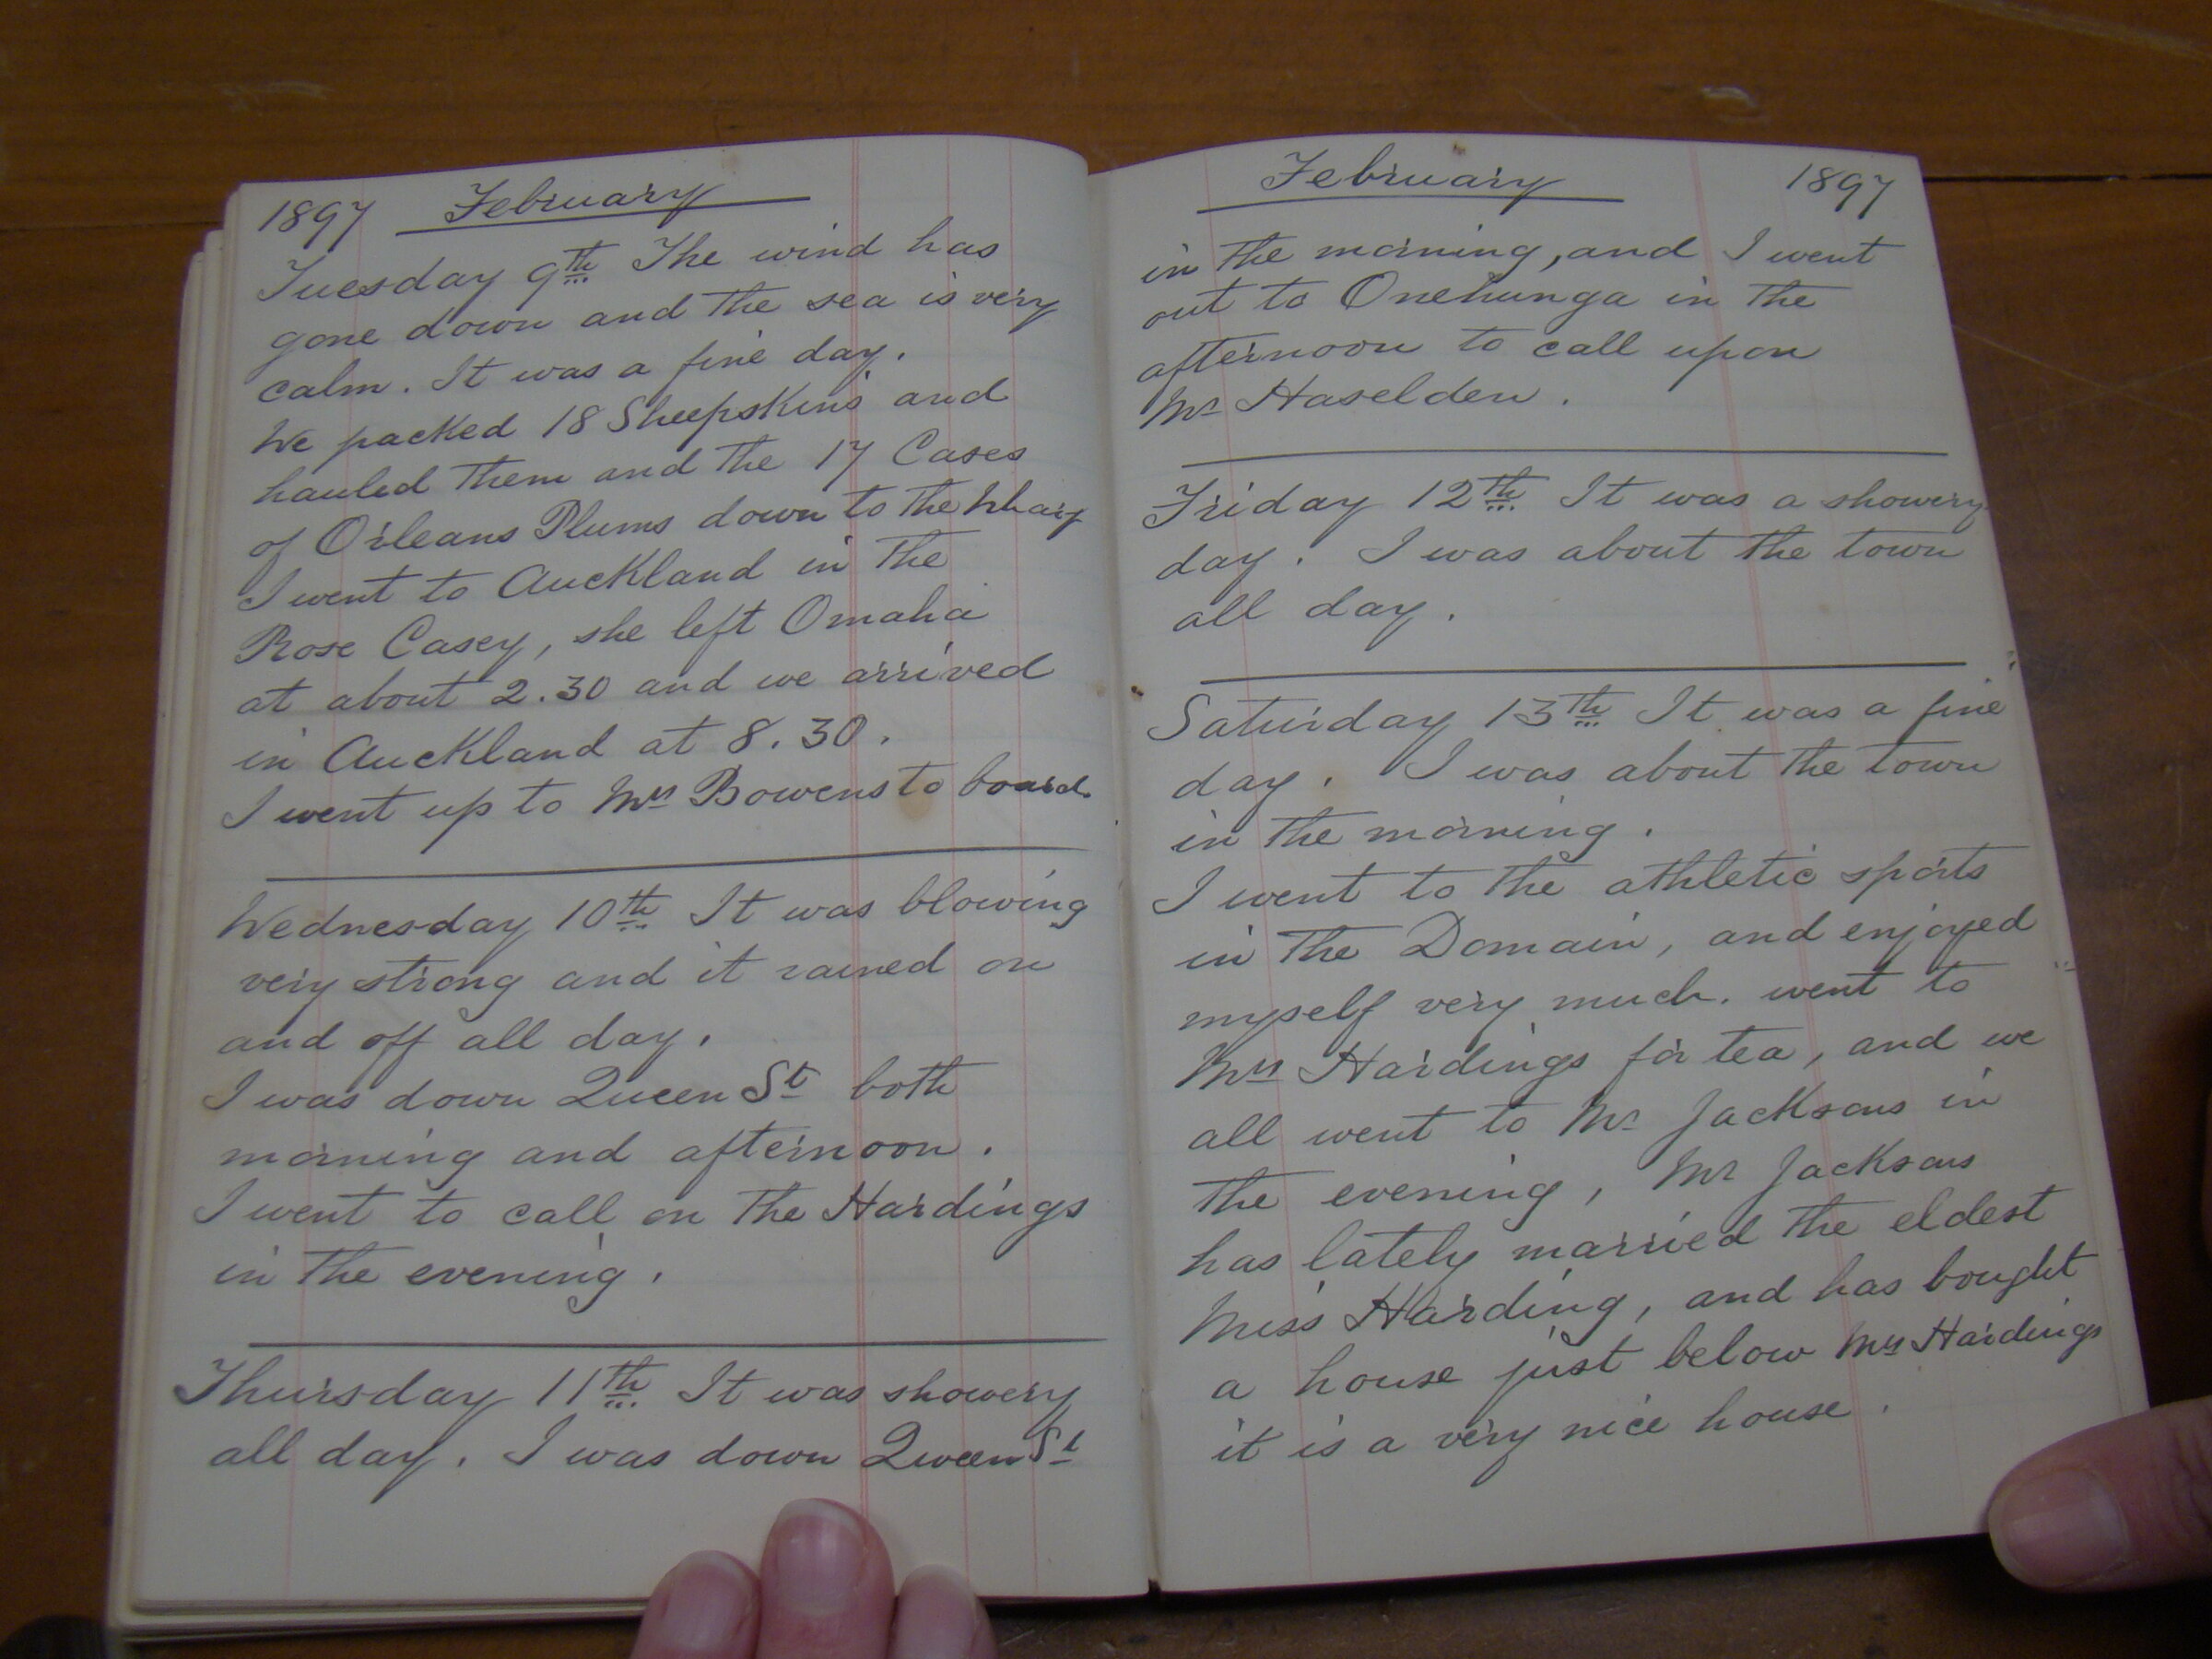 1897 February
Tuesday 9th The wind has
gone down and the sea is very
calm. It was a fine day.
We packed 18 Sheepskins and
hauled them and the 17 Cases
of Orleans Plums down to the Wharf
I went to Auckland in the
Rose Casey, she left Omaha
at about 2.30 and we arrived
in Auckland at 8.30.
I went up to Mrs Bowens to board.
Wednesday 10th It was blowing
very strong and it rained on
and off all day.
I was down Queen St both
morning and afternoon.
I went to call on the Hardings
in the evening.
Thursday 11th It was showery
all day. I was down Queen St
February 1897
in the morning, and I went
out to Onehunga in the
afternoon to call upon
Mr Haselden.
Friday 12th It was a showery
day. I was about the town
all day.
Saturday 13th It was a fine
day. I was about the town
in the morning.
I went to the athletic sports
in the Domain, and enjoyed
myself very much. went to
Mrs Hardings for tea, and we
all went to Mr Jacksons in
the evening, Mr Jacksons
has lately married the eldest
Miss Harding, and has bought
a house just below Mrs Hardings
it is a very nice house.